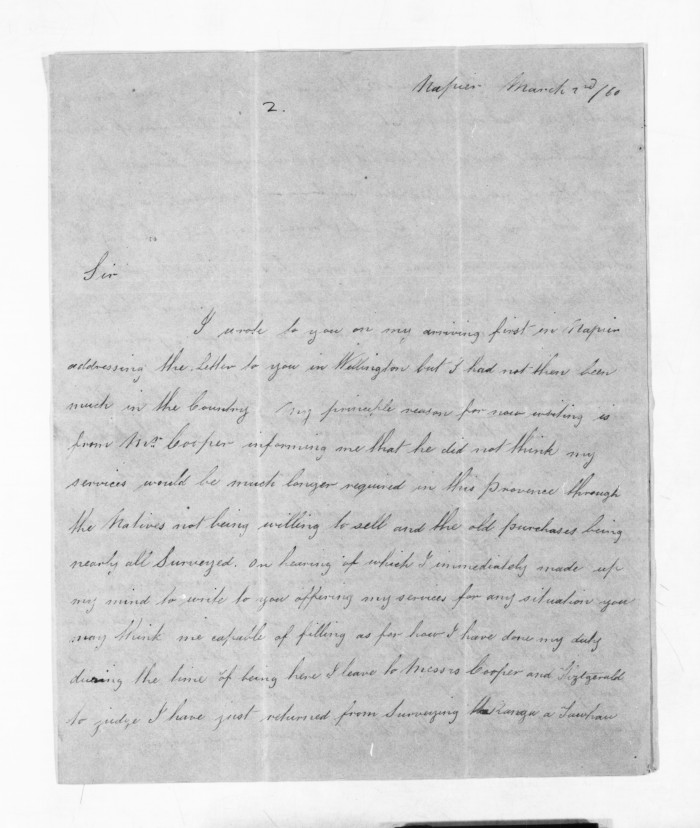 Napier March 2nd/60
2.
Sir
I wrote to you on my arriving first in Napier
addressing the Letter to you in Wellington but I had not then been
much in the Country. My principle reason for now writing is
from Mr. Cooper informing me that he did not think my
services would be much longer required in this Provence through
the Natives not being willing to sell and the old purchases being
nearly all Surveyed. On hearing of which I immediately made up
my mind to write to you offering my services for any situation you
may think me capable of filling as for how I have done my duty
during the time of being here I leave to Messrs Cooper and Fiztgerald
to judge I have just returned from Surveying the ranga a Tawhau
1